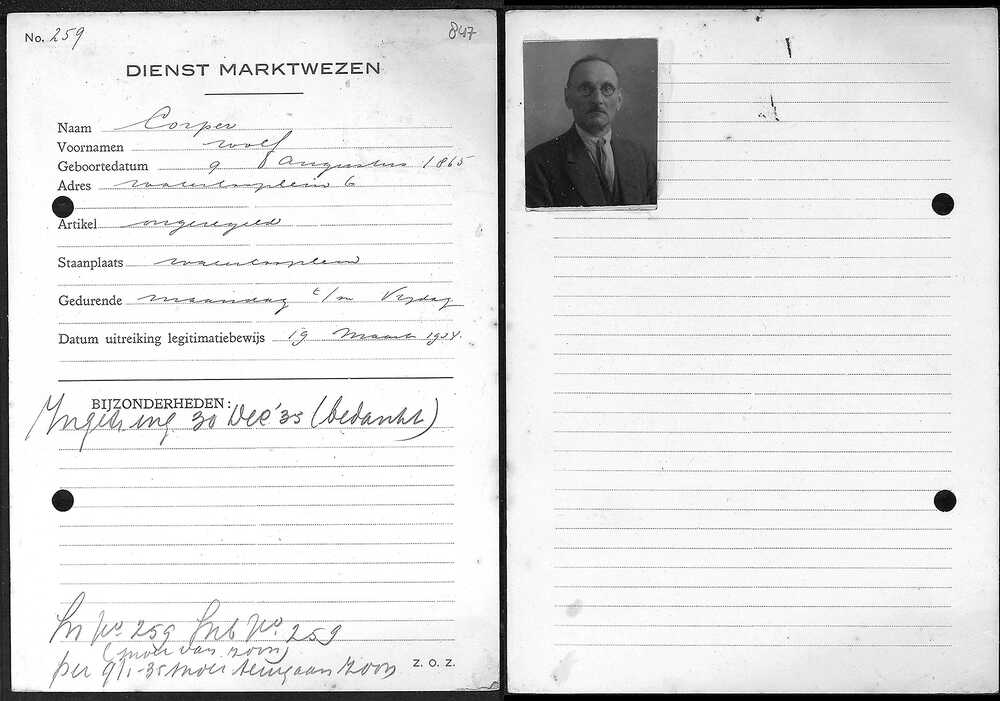 No. 259 847
DIENST MARKTWEZEN
Naam Corper
Voornamen Wolf
Geboortedatum 9 Augustus 1865
Adres Waterlooplein 6
Artikel ongeregeld
Staanplaats Waterlooplein
Gedurende maandag t/m Vrijdag
Datum uitreiking legitimatiebewijs 19 Maart 1934.
BIJZONDERHEDEN:
Inget. ing 30 Dec '35 (bedankt)
In No. 259 No. 259
van zoon)
per 9/1-35 aan zoon
Z. O. Z.